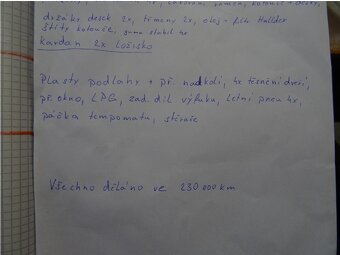 ramen, kotouče + desky,
držáky desek 2x, třmeny 2x, olej + filtr Haldex
štíty kotouče, guma stabil 4x
Kardan 2x Ložisko
Plasty podlahy + př. nadkolí, 4x těsnění dveří,
př. okno, LPG, zad. díl výfuku, letní pneu 4x,
páčka tempomatu, stěrače
Všechno děláno ve 230 000 km